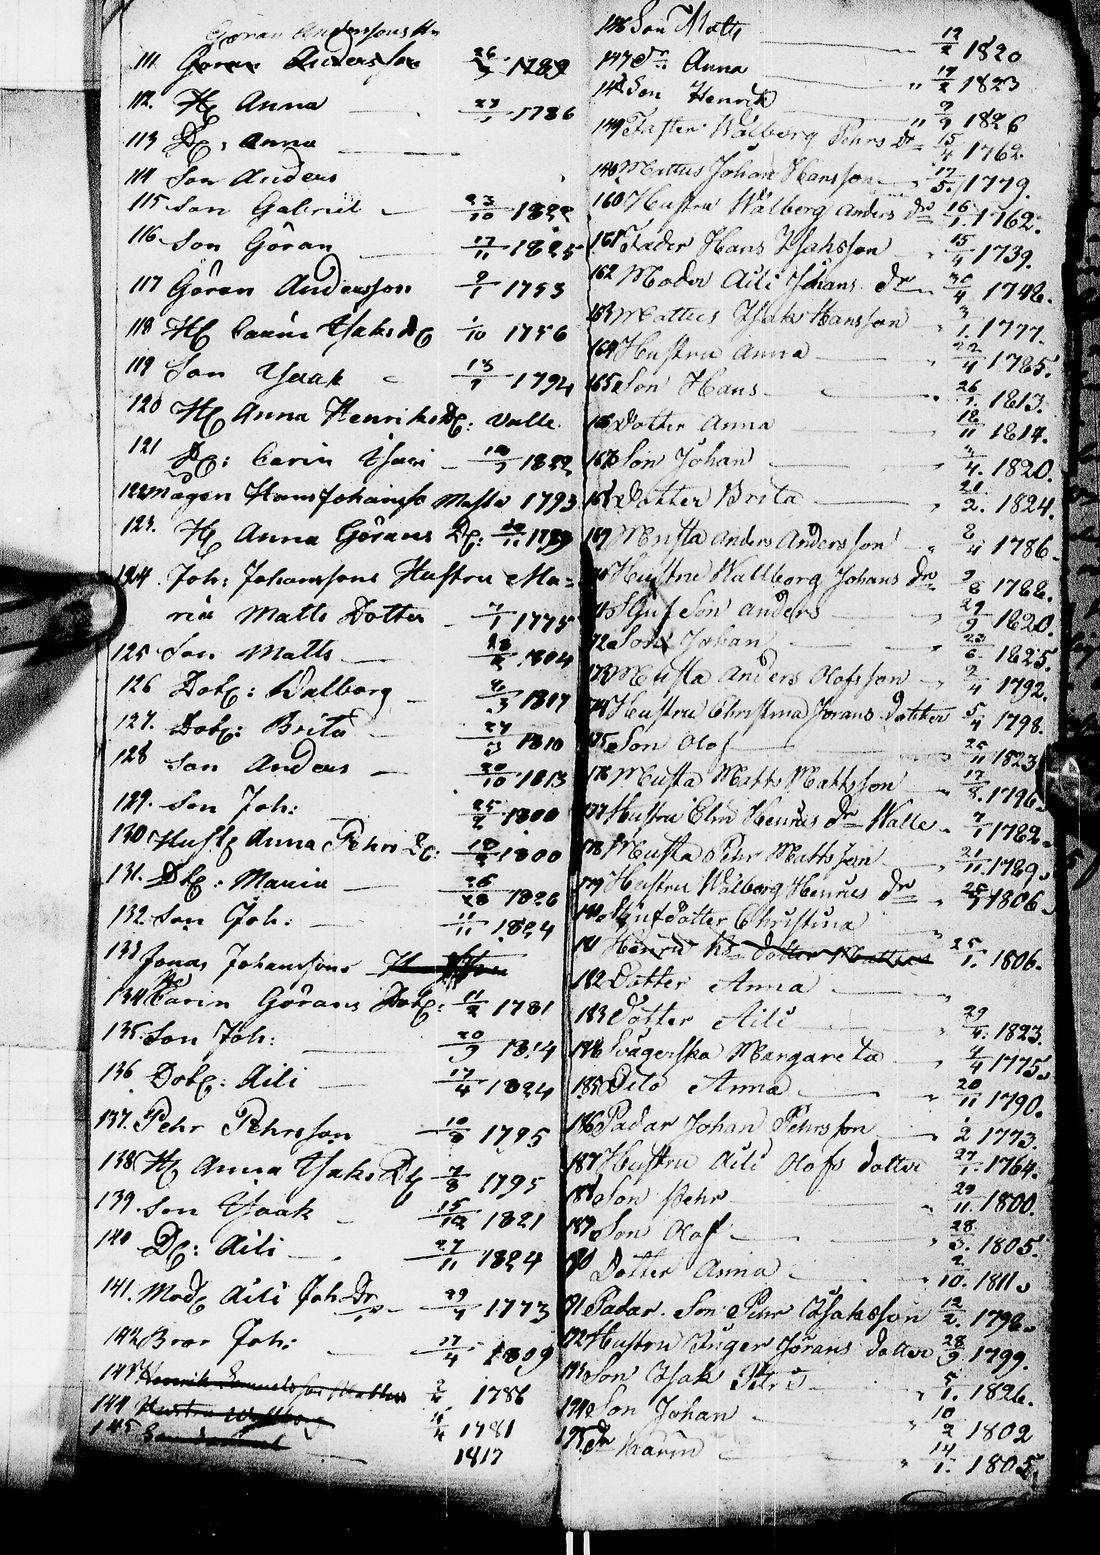 Göran Anderssons Hu
111 Göran Andersson 26 1789
112. H. Anna 27/1 1786
113 D. Anna
114 Son Anders
115 Son Gabriel 23/10 1822
116 Son Göran 17/11 1825
117 Göran Andersson 9/1 1753
118 H. Carin Isaks D. /10 1756
119 Son Isaak 13/1 1794
120 H. Anna Henriks D: Valle
121 D: Carin 1822
122 Mågen Hans Johansso Masta 1793
123. H. Anna Görans D: 1789
124 Joh: Johanssons Hustru Ma-
ria Matts Dotter 7/1 1775
125 Son Matts 1804
126 Dot: Walborg 8/3 1817
127. Dot: Brita 1810
128 Son Anders 20/10 1813
129. Son Joh: 25/2 1800
130 Hust Anna Pehrs D: 1800
131. Dt: Maria 1826
132. Son Joh: 11/11 1824
133 Jonas Johanssons
134 Carin Görans Dot: 11/2 1781
135. Son Joh: 20/9 1814
136 Dot: Aili 17/4 1824
137. Pehr Pehrsson 1795
138 H. Anna Isaks D. 7/8 1795
139. Son Isaak 15/12 1821
140 D: Aili 27/11 1824
141. Mod. Aili Joh. Dr 29/4 1773
142 Bror Joh: 27/4 1809
143 Henrik Samuelsson 1786
144 Hustru Walborg 4/4 1781
145 Son 1817
146 Son Matts 12/2 1820
147 Dr Anna 19/2 1823
148 Son Henrik 9/9 1826
149 Faster Walborg Pehrs Dr 15/4 1762.
Matts Johan Hansson 17/5 1779.
160 Hustru Walborg Anders dr 16/1. 1762.
161 Fader Hans Isaksson 15/4 1739.
162 Moder Aili Johans dr 30/4 1748.
163 Matts Isak Hansson 3/1. 1777.
164 Hustru Anna 22/4 1785.
165 Son Hans 26/1. 1813.
166 Dotter Anna 18/11 1817.
167 Son Johan /4. 1820.
168 Dotter Brita 21/2. 1824.
169 Musta Anders Andersson 8/4 1786
170 Hustru Wallborg Johans dr 9/8 1788.
171 Styf Son Anders 29/9 1820.
172 Son Johan 23/6 1825.
173 Musta Anders Olofsson 2/4 1792.
174 Hustru Christina Jörans dotter 5/4 1798.
175 Son Olof 25/11 1823
176 Musta Matts Mattsson 17/8. 1796.
177 Hustru Elin Henrics dr Walle 7/1 1782.
178 Musta Pehr Mattsson 21/11. 1789.
179 Hustru Walborg Henrics dr 1806
180 Styfdotter Christina
181 dotter 25/1. 1806.
182 Dotter Anna
183 Dotter Aili 29/4. 1823.
184 Svägerska Margareta 2/4 1775
185 Dito Anna 20/11 1790.
186 Padar Johan Pehrsson /2 1773
187 Hustru Aili Olofs dotter 27/1. 1764.
188 Son Pehr 29/11. 1800.
189 Son Olof 28/3. 1805.
190 Dotter Anna 2/10. 1811
191 Padar Son Pehr Isaksson 12/2. 1798
192 Hustru Inger Jörans dotter 28/9. 1799.
193 Son Isak Petri 5/1. 1826.
194 Son Johan 10/2 1802
195 Dr Karin 14/1. 1805.